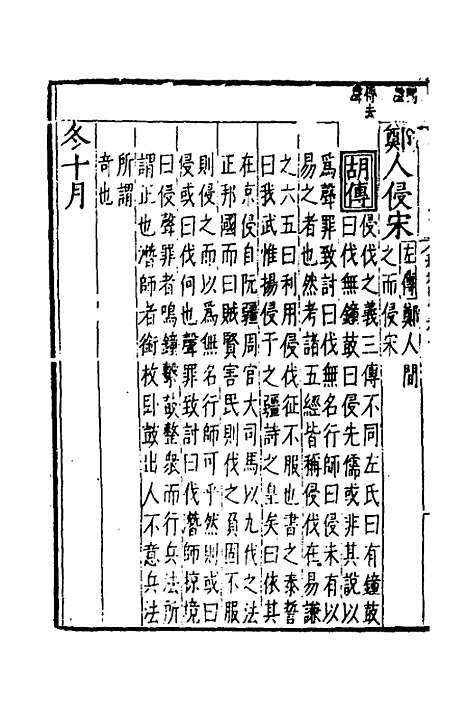 鄭人侵宋左傳鄭人間
之而侵宋
胡傳侵伐之義三傳不同左氏曰有鐘鼓
曰伐無鐘鼓曰侵先儒或非其說以
爲聲罪致討曰伐無名行師曰侵未有以
易之者也然考諸五經皆稱侵伐在易謙
之六五曰利用侵伐征不服也書之泰誓
曰我武惟揚侵于之疆詩之皇矣曰依其
在京侵自阮疆周官大司馬以九伐之法
正邦國而曰賊賢害民則伐之負固不服
則侵之而以爲無名行師可乎然則或曰
侵或曰伐何也聲罪致討曰伐潛師掠境
曰侵聲罪者鳴鐘擊鼓整衆而行兵法所
謂正也潛師者銜枚臥鼓出人不意兵法
所謂
奇也
冬十月